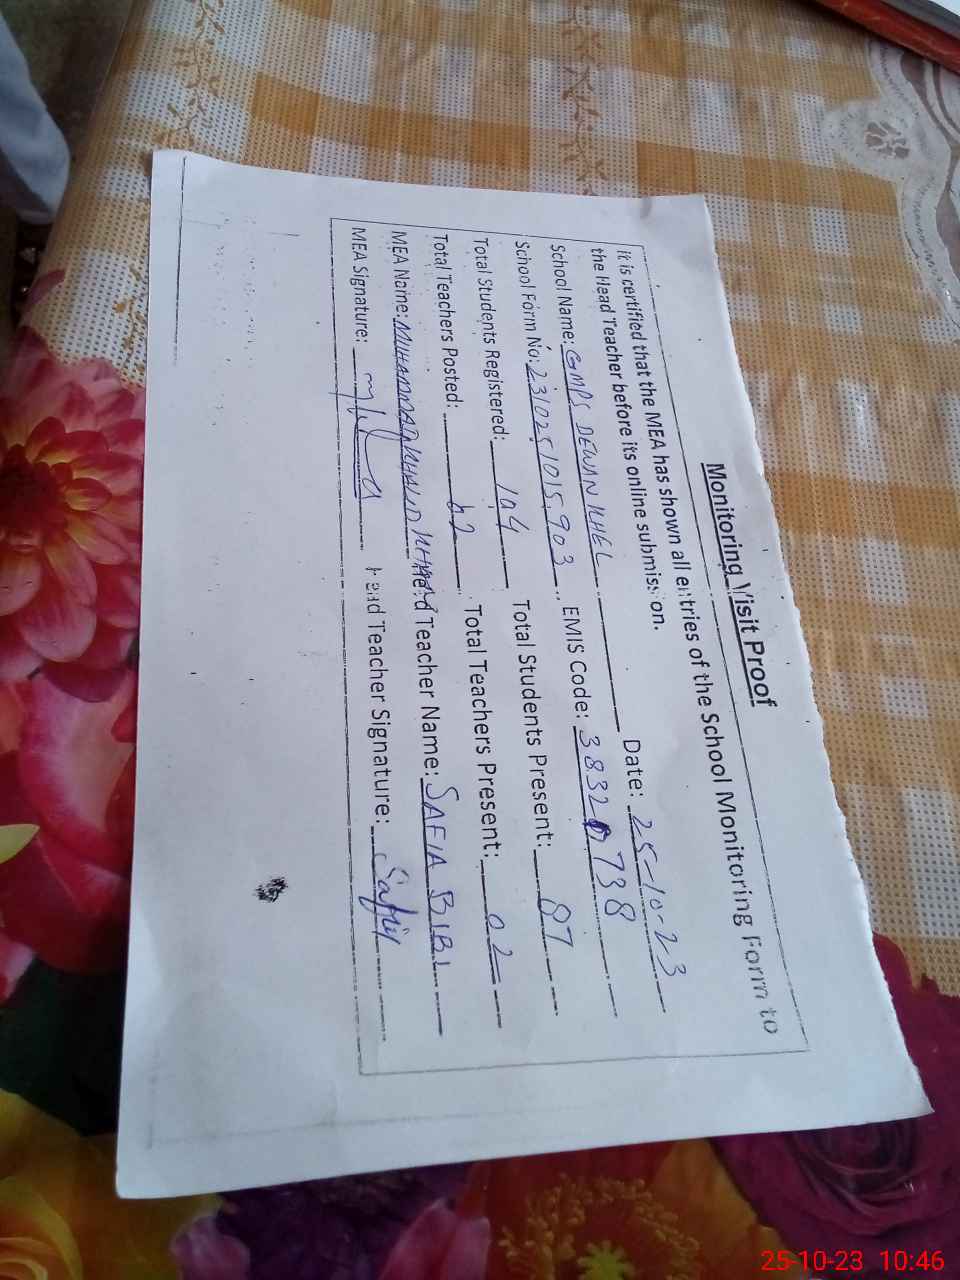 Monitoring Visit Proof
It is certified that the MEA has shown all entries of the School Monitoring Form to
the Head Teacher before its online submission.
School Name: GMPS DEWAN KHEL Date: 25-10-23
School Form No: 231025-1015903 EMIS Code: 38320738
Total Students Registered: 104 Total Students Present: 87
Total Teachers Posted: 02 Total Teachers Present: 02
MEA Name: MUHAMMAD KHALID KHAN Head Teacher Name: SAFIA BIBI
MEA Signature: Head Teacher Signature: Safia
25-10-23 10:46